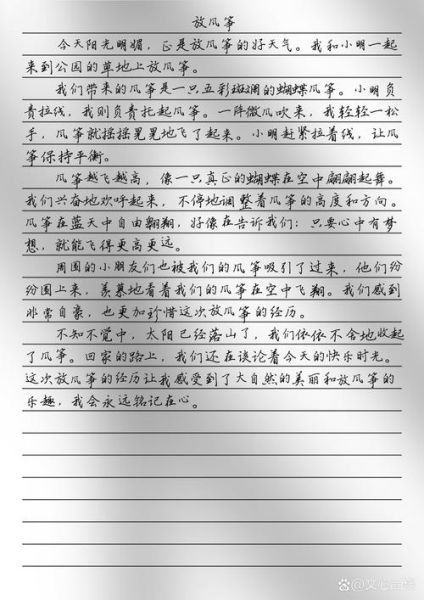 放风筝
今天阳光明媚，正是放风筝的好天气。我和小明一起
来到公园的草地上放风筝。
我们带来的风筝是一只五彩斑斓的蝴蝶风筝。小明负
责拉线，我则负责托起风筝。一阵微风吹来，我轻轻一松
手，风筝就摇摇晃晃地飞了起来。小明赶紧拉着线，让风
筝保持平衡。
风筝越飞越高，像一只真正的蝴蝶在空中翩翩起舞。
我们兴奋地欢呼起来，不停地调整着风筝的高度和方向。
风筝在蓝天中自由翱翔，好像在告诉我们：只要心中有梦
想，就能飞得更高更远。
周围的小朋友们也被我们的风筝吸引了过来，他们纷
纷围上来，羡慕地看着我们的风筝在空中飞翔。我们感到
非常自豪，也更加珍惜这次放风筝的经历。
不知不觉中，太阳已经落山了，我们依依不舍地收起
了风筝。回家的路上，我们还在谈论着今天的快乐时光。
这次放风筝的经历让我感受到了大自然的美丽和放风筝的
乐趣，我会永远铭记在心。